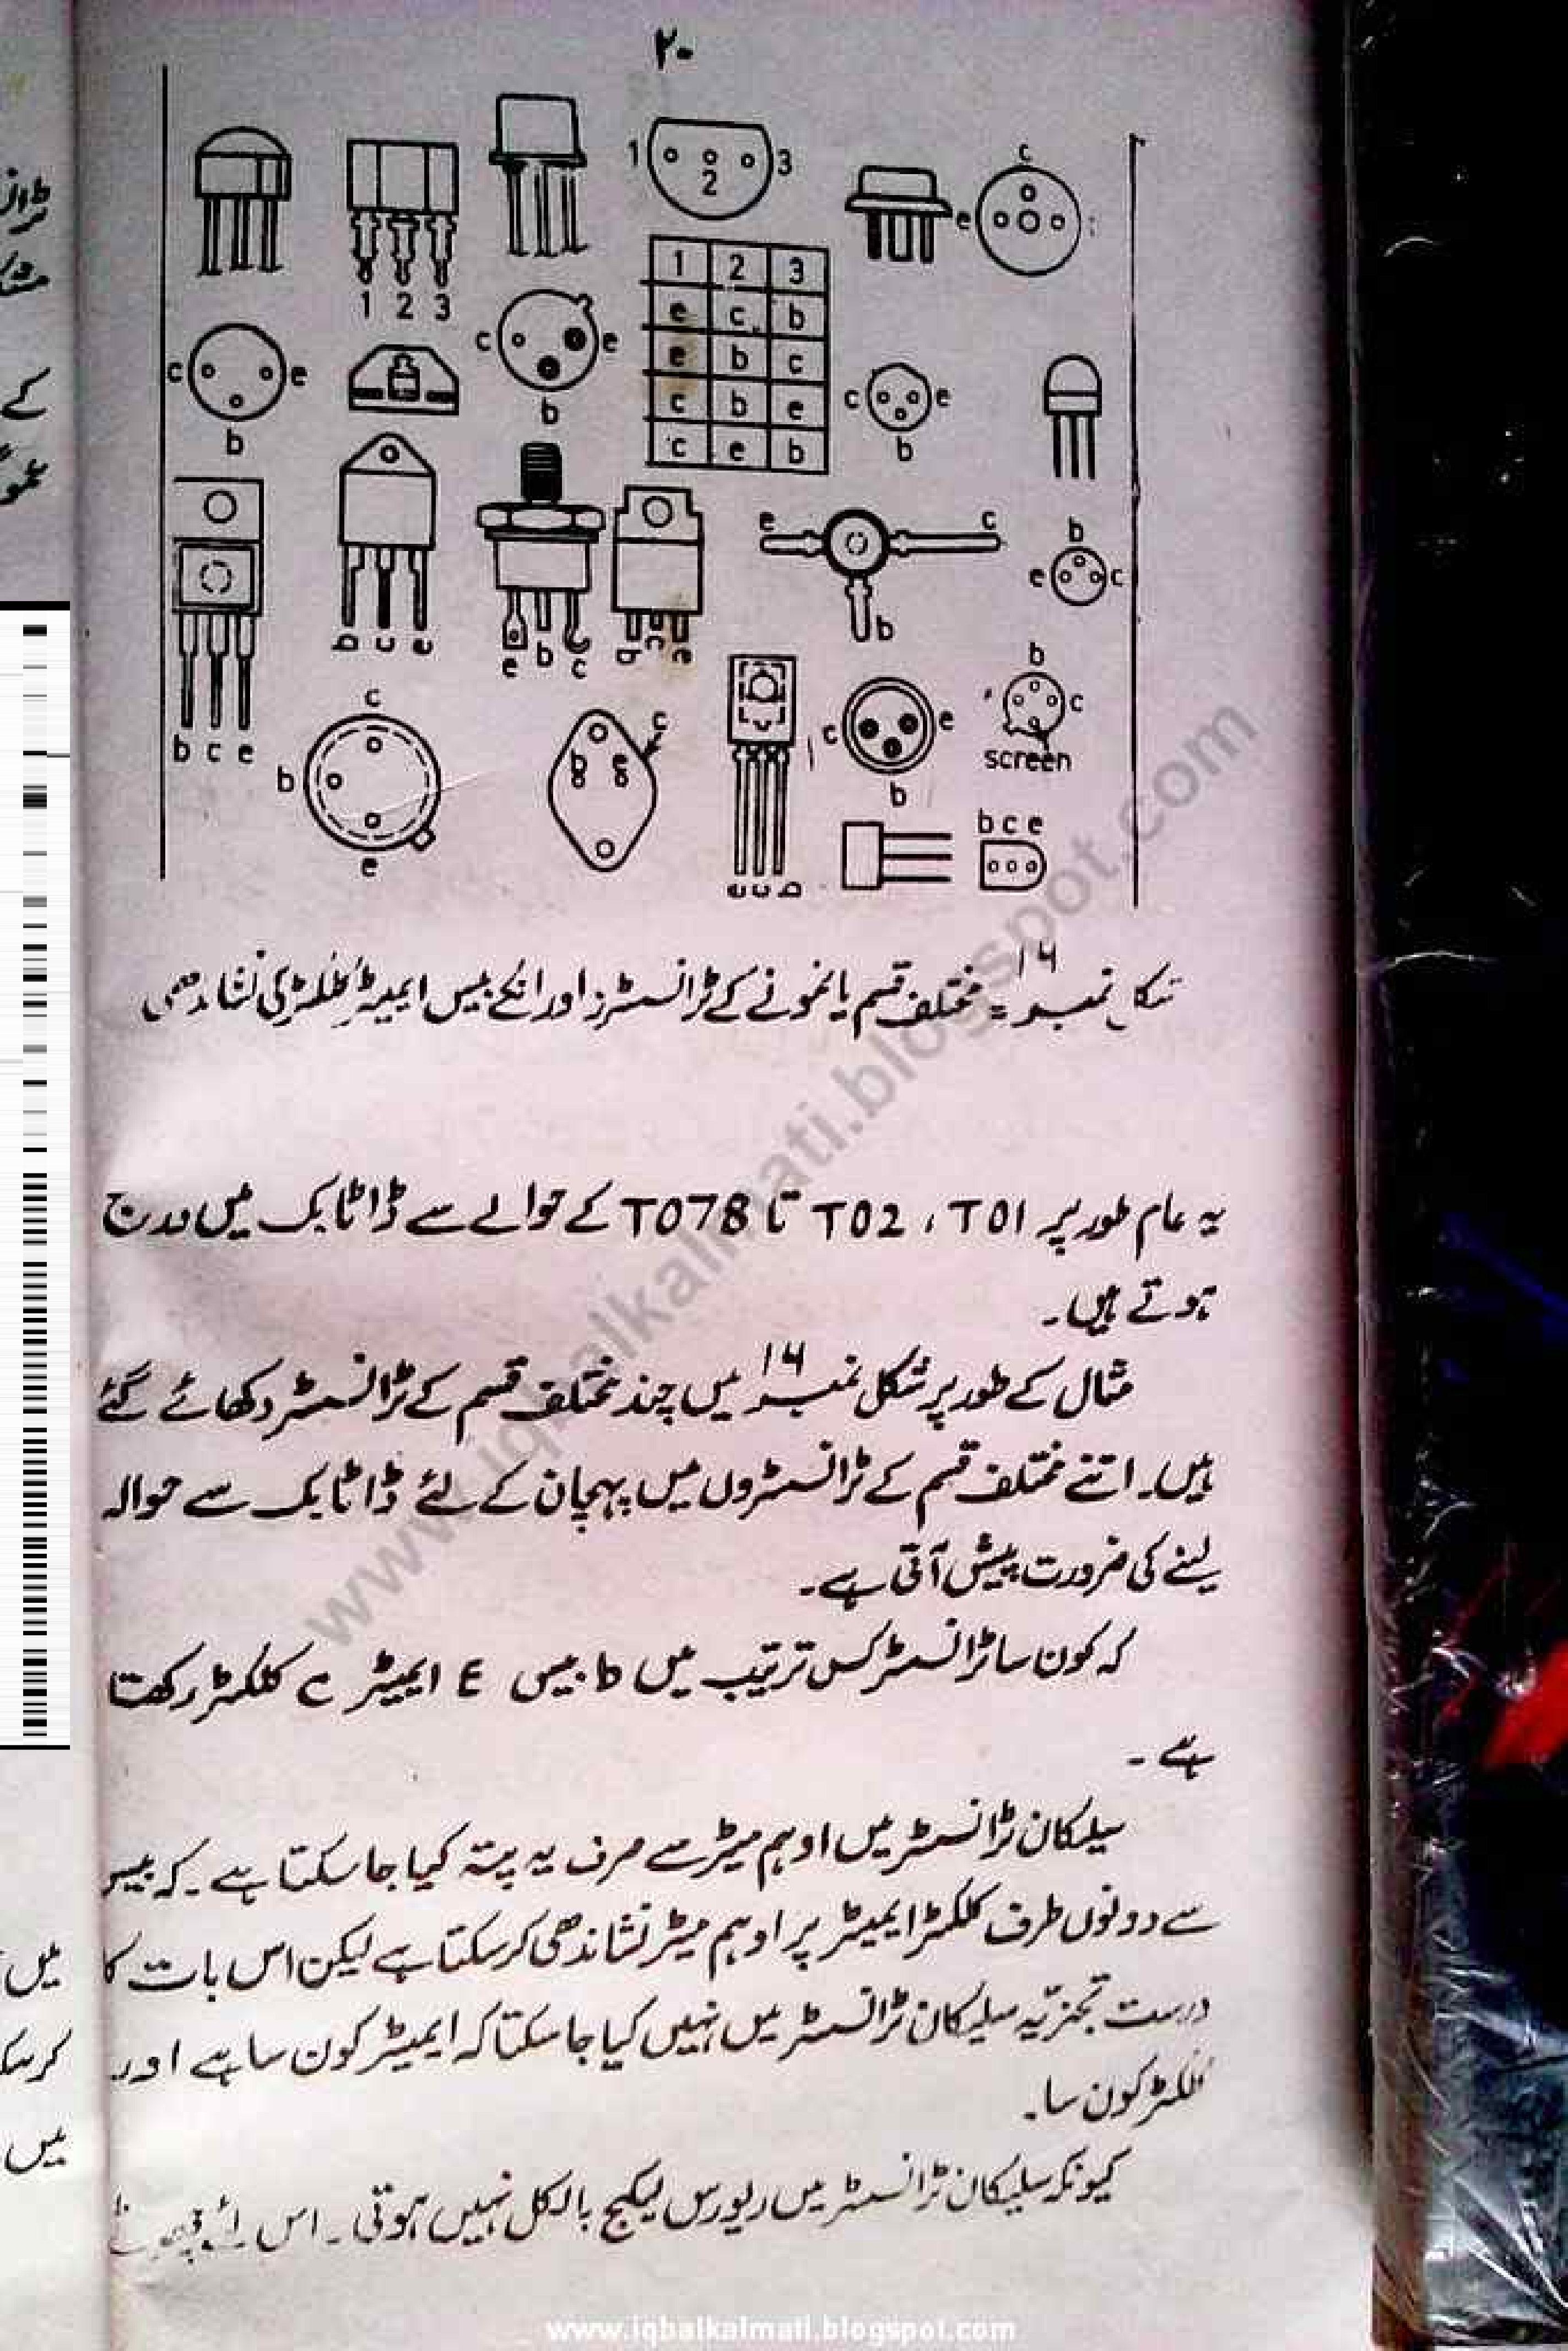 ۲۰
1 2 3
1 2 3
c e
b
c e
b
1 2 3
e c b
e b c
c b e
c e b
c
e
c e
b
b c e
b c e
e b c
b c e
e c
b
b
e c
c
b
e
b e
c
e c b
c e
b
b
c
screen
b c e
شکل نمبر ۱۶ = مختلف قسم یا نمونے کے ٹرانسسٹرز اور انکے بیس ایمیٹر کلکٹر کی نشاندھی
یہ عام طور پر T01 ، T02 تا T078 کے حوالے سے ڈاٹا بک میں درج
ہوتے ہیں۔
مثال کے طور پر شکل نمبر ۱۶ میں چند مختلف قسم کے ٹرانسسٹر دکھائے گئے
ہیں۔ اتنے مختلف قسم کے ٹرانسسٹروں میں پہچان کے لئے ڈاٹا بک سے حوالہ
لینے کی ضرورت پیش آتی ہے۔
کہ کون سا ٹرانسسٹر کس ترتیب میں b بیس E ایمیٹر c کلکٹر رکھتا
ہے ۔
سیلیکان ٹرانسسٹر میں اوہم میٹر سے صرف یہ پتہ کیا جا سکتا ہے ۔ کہ بیس
سے دونوں طرف کلکٹر ایمیٹر پر اوہم میٹر نشاندھی کر سکتا ہے لیکن اس بات کا
درست تجزیہ سیلیکان ٹرانسسٹر میں نہیں کیا جا سکتا کہ ایمیٹر کون سا ہے اور
کلکٹر کون سا۔
کیونکہ سیلیکان ٹرانسسٹر میں ریورس لیکیج بالکل نہیں ہوتی ۔ اس لئے
www.iqbalkalmati.blogspot.com
www.iqbalkalmati.blogspot.com